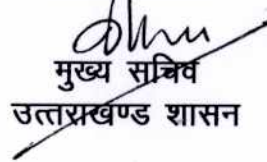 मुख्य सचिव
उत्तराखण्ड शासन